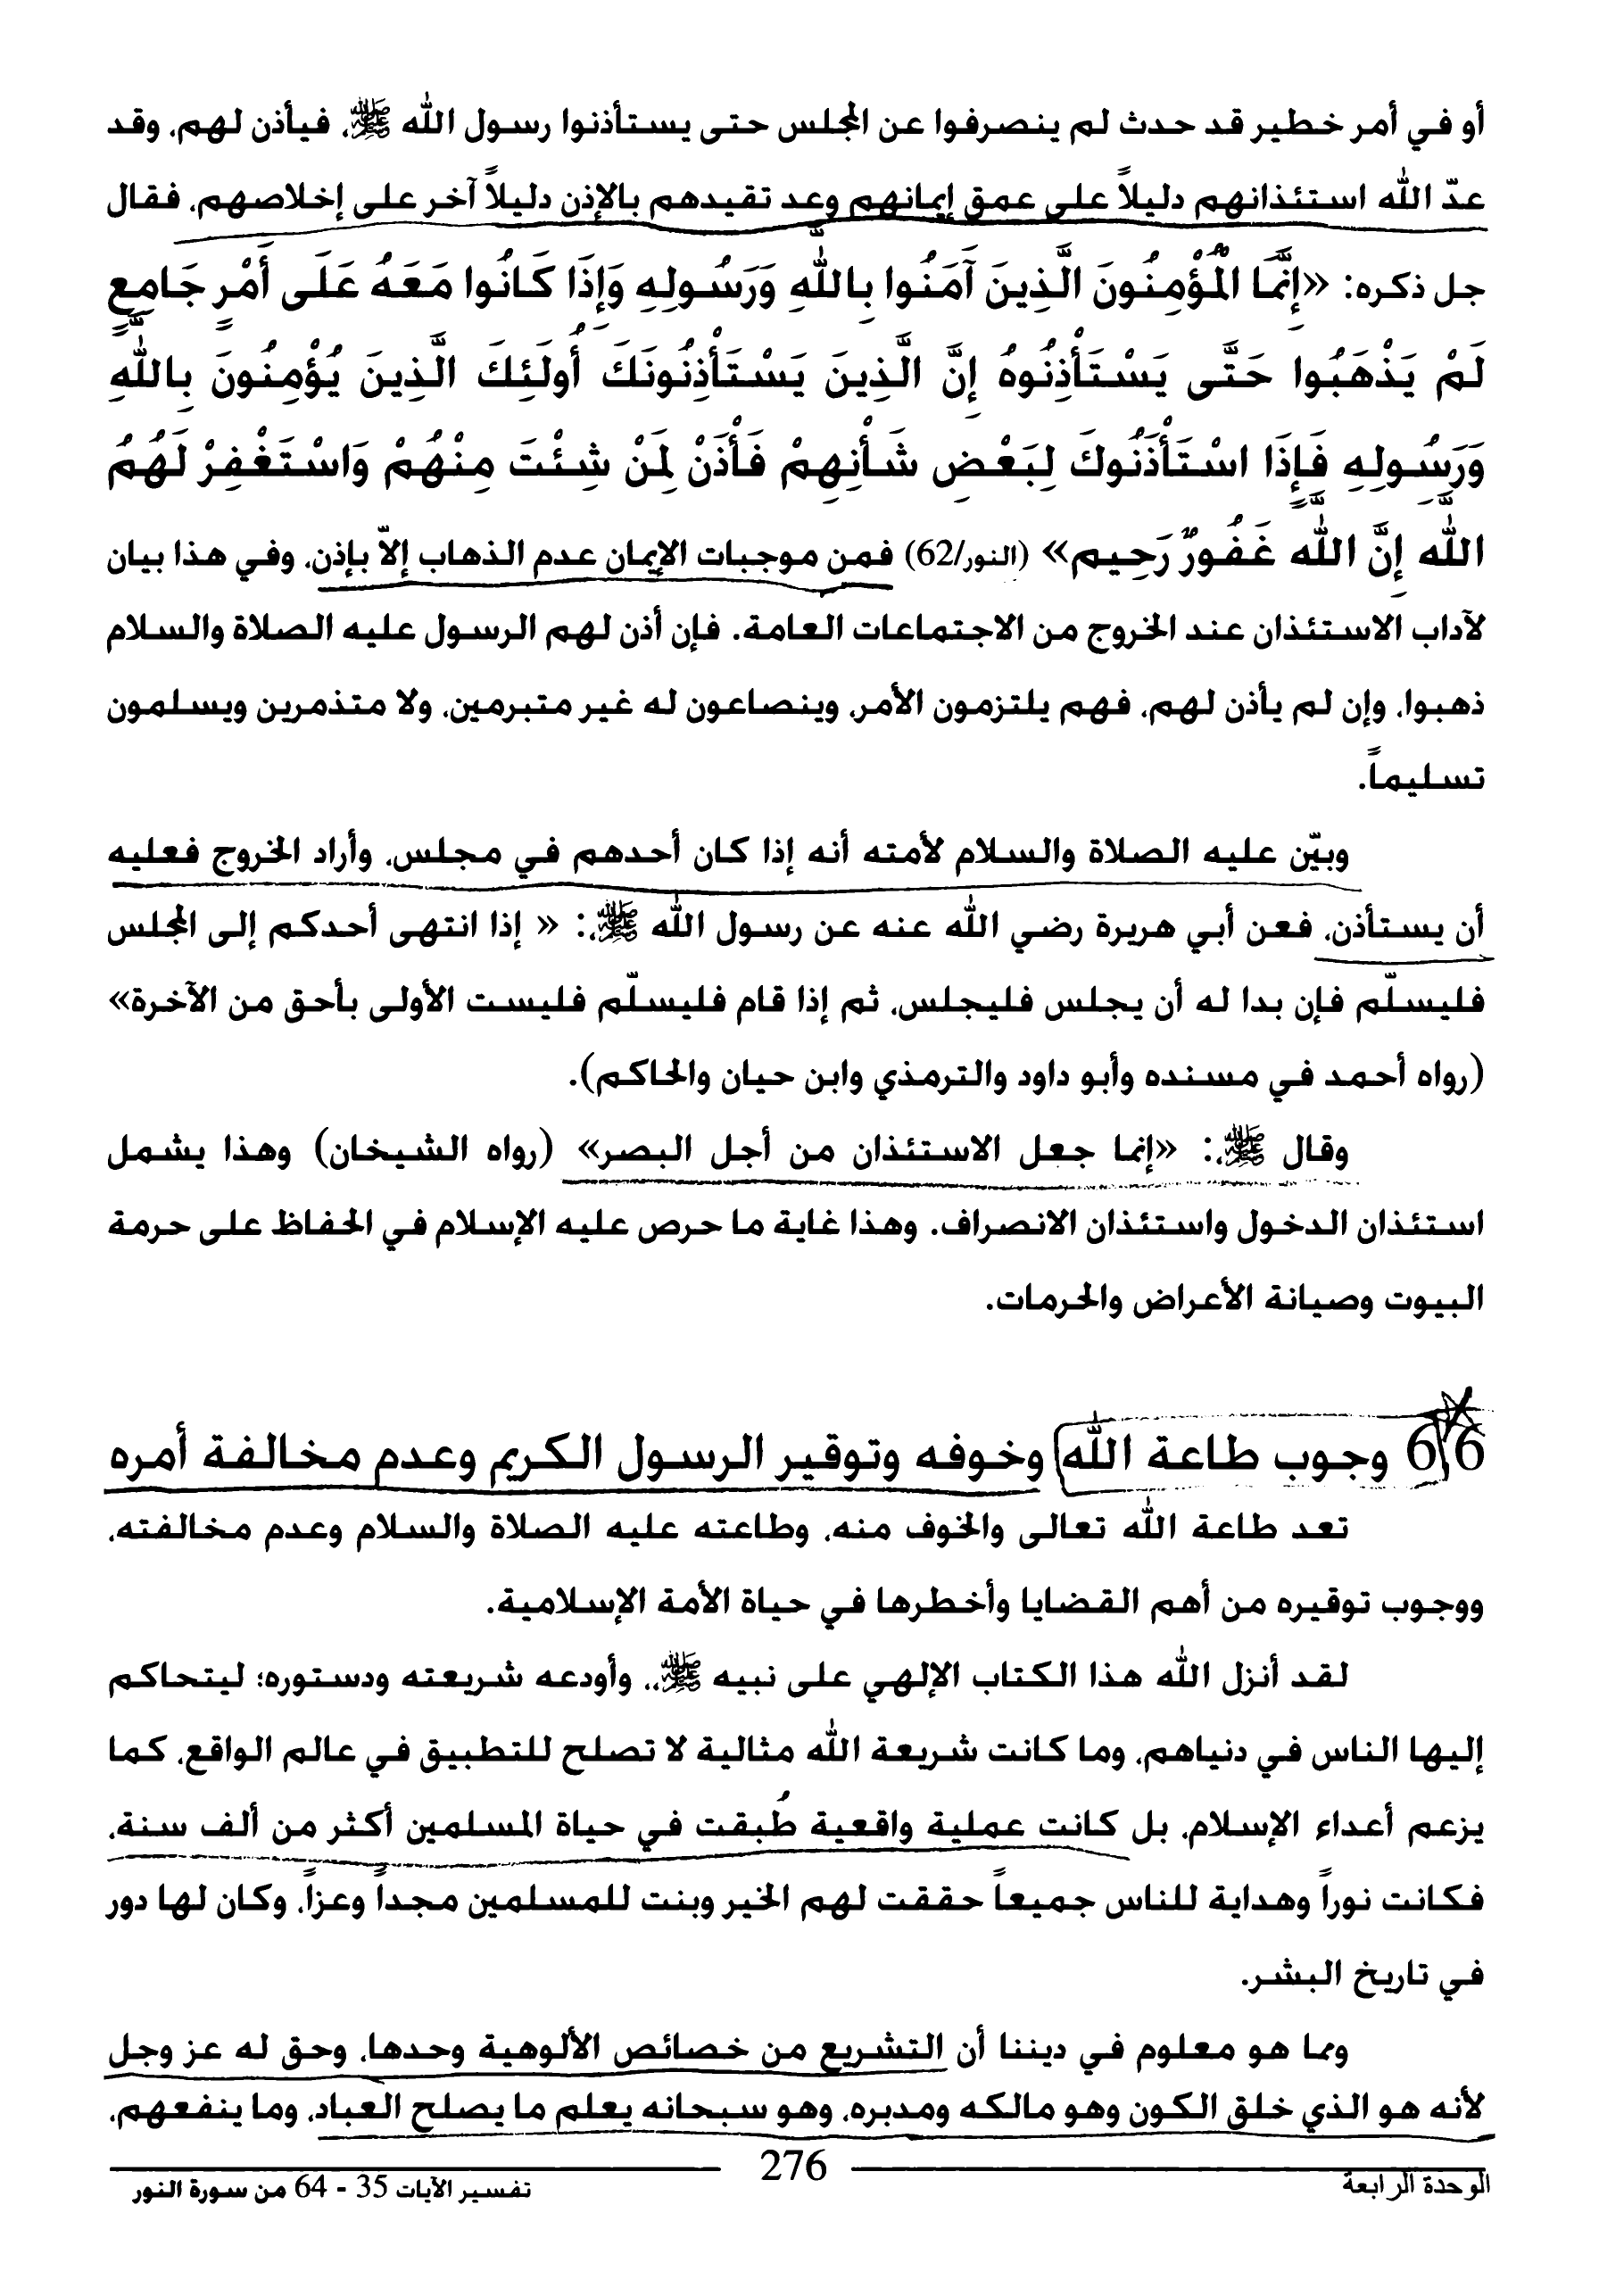 أو في أمر خطير قد حدث لم ينصرفوا عن المجلس حتى يستأذنوا رسول الله ﷺ، فيأذن لهم، وقد
عدّ الله استئذانهم دليلاً على عمق إيمانهم وعد تقيدهم بالإذن دليلاً آخر على إخلاصهم، فقال
جل ذكره: «إِنَّمَا الْمُؤْمِنُونَ الَّذِينَ آمَنُوا بِاللَّهِ وَرَسُولِهِ وَإِذَا كَانُوا مَعَهُ عَلَى أَمْرٍ جَامِعٍ
لَمْ يَذْهَبُوا حَتَّى يَسْتَأْذِنُوهُ إِنَّ الَّذِينَ يَسْتَأْذِنُونَكَ أُولَئِكَ الَّذِينَ يُؤْمِنُونَ بِاللَّهِ
وَرَسُولِهِ فَإِذَا اسْتَأْذَنُوكَ لِبَعْضِ شَأْنِهِمْ فَأْذَنْ لِمَنْ شِئْتَ مِنْهُمْ وَاسْتَغْفِرْ لَهُمُ
اللَّهَ إِنَّ اللَّهَ غَفُورٌ رَحِيم» (النور/62) فمن موجبات الإيمان عدم الذهاب إلاّ بإذن، وفي هذا بيان
لآداب الاستئذان عند الخروج من الاجتماعات العامة. فإن أذن لهم الرسول عليه الصلاة والسلام
ذهبوا، وإن لم يأذن لهم، فهم يلتزمون الأمر، وينصاعون له غير متبرمين، ولا متذمرين ويسلمون
تسليماً.
وبيّن عليه الصلاة والسلام لأمته أنه إذا كان أحدهم في مجلس، وأراد الخروج فعليه
أن يستأذن، فعن أبي هريرة رضي الله عنه عن رسول الله ﷺ: « إذا انتهى أحدكم إلى المجلس
فليسلّم فإن بدا له أن يجلس فليجلس، ثم إذا قام فليسلّم فليست الأولى بأحق من الآخرة»
(رواه أحمد في مسنده وأبو داود والترمذي وابن حيان والحاكم).
وقال ﷺ: «إنما جعل الاستئذان من أجل البصر» (رواه الشيخان) وهذا يشمل
استئذان الدخول واستئذان الانصراف. وهذا غاية ما حرص عليه الإسلام في الحفاظ على حرمة
البيوت وصيانة الأعراض والحرمات.
6\6 وجوب طاعة الله وخوفه وتوقير الرسول الكريم وعدم مخالفة أمره
تعد طاعة الله تعالى والخوف منه، وطاعته عليه الصلاة والسلام وعدم مخالفته،
ووجوب توقيره من أهم القضايا وأخطرها في حياة الأمة الإسلامية.
لقد أنزل الله هذا الكتاب الإلهي على نبيه ﷺ، وأودعه شريعته ودستوره؛ ليتحاكم
إليها الناس في دنياهم، وما كانت شريعة الله مثالية لا تصلح للتطبيق في عالم الواقع، كما
يزعم أعداء الإسلام، بل كانت عملية واقعية طُبقت في حياة المسلمين أكثر من ألف سنة،
فكانت نوراً وهداية للناس جميعاً حققت لهم الخير وبنت للمسلمين مجداً وعزاً، وكان لها دور
في تاريخ البشر.
ومما هو معلوم في ديننا أن التشريع من خصائص الألوهية وحدها، وحق له عز وجل
لأنه هو الذي خلق الكون وهو مالكه ومدبره، وهو سبحانه يعلم ما يصلح العباد، وما ينفعهم،
الوحدة الرابعة 276 تفسير الآيات 35 - 64 من سورة النور